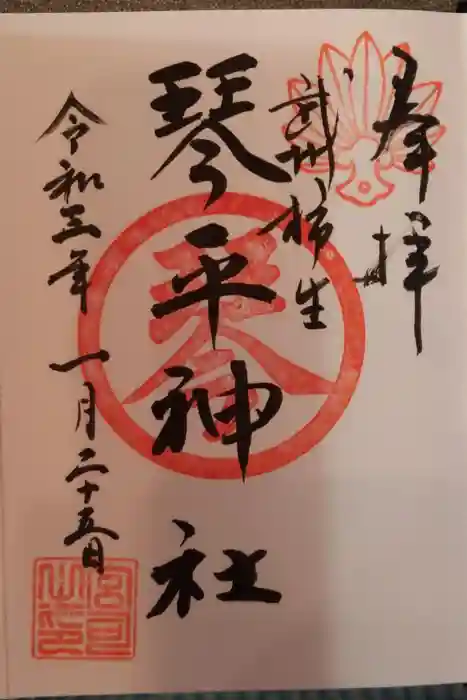 奉拝
武州柿生
琴平神社
令和三年一月二十五日
宮司之印